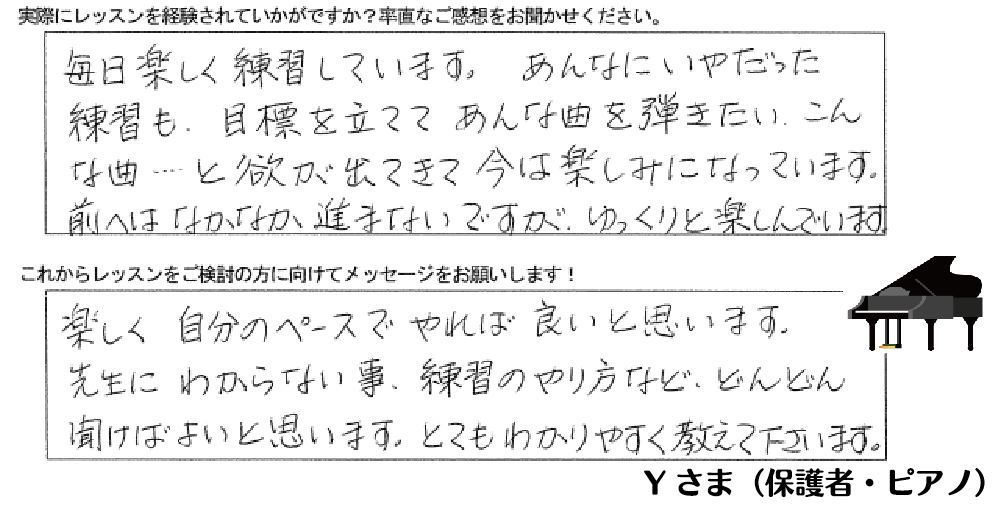 実際にレッスンを経験されていかがですか？率直なご感想をお聞かせください。
毎日楽しく練習しています。 あんなにいやだった
練習も、目標を立てて あんな曲を弾きたい、こん
な曲…と欲が出てきて今は楽しみになっています。
前へはなかなか進まないですが、ゆっくりと楽しんでいます
これからレッスンをご検討の方に向けてメッセージをお願いします！
楽しく 自分のペースで やれば 良いと思います。
先生に わからない事、練習のやり方など、どんどん
聞けばよいと思います。とてもわかりやすく教えて下さいます。
Yさま（保護者・ピアノ）